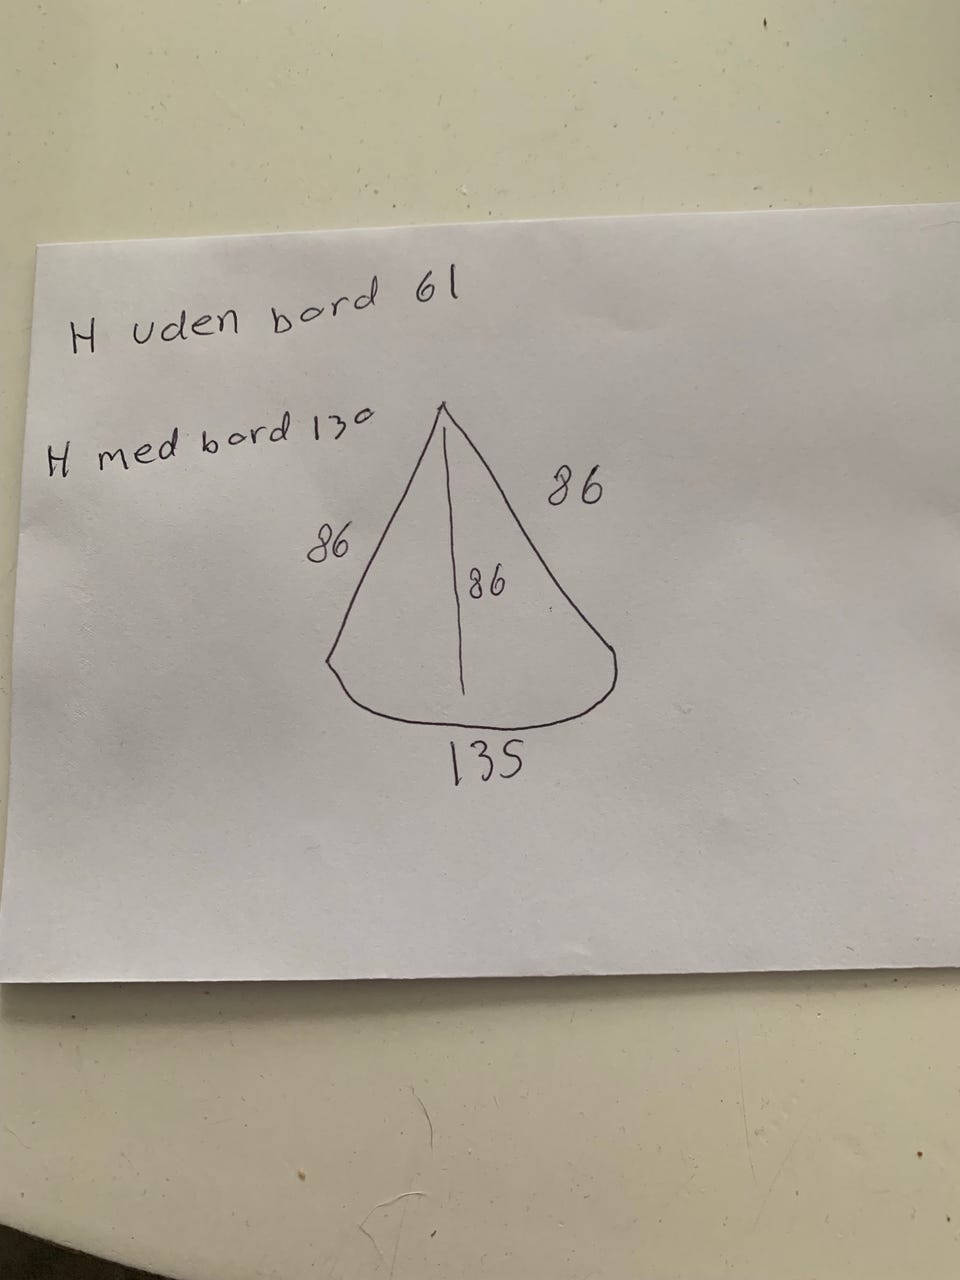 H uden bord 61
H med bord 130
86
86
86
135